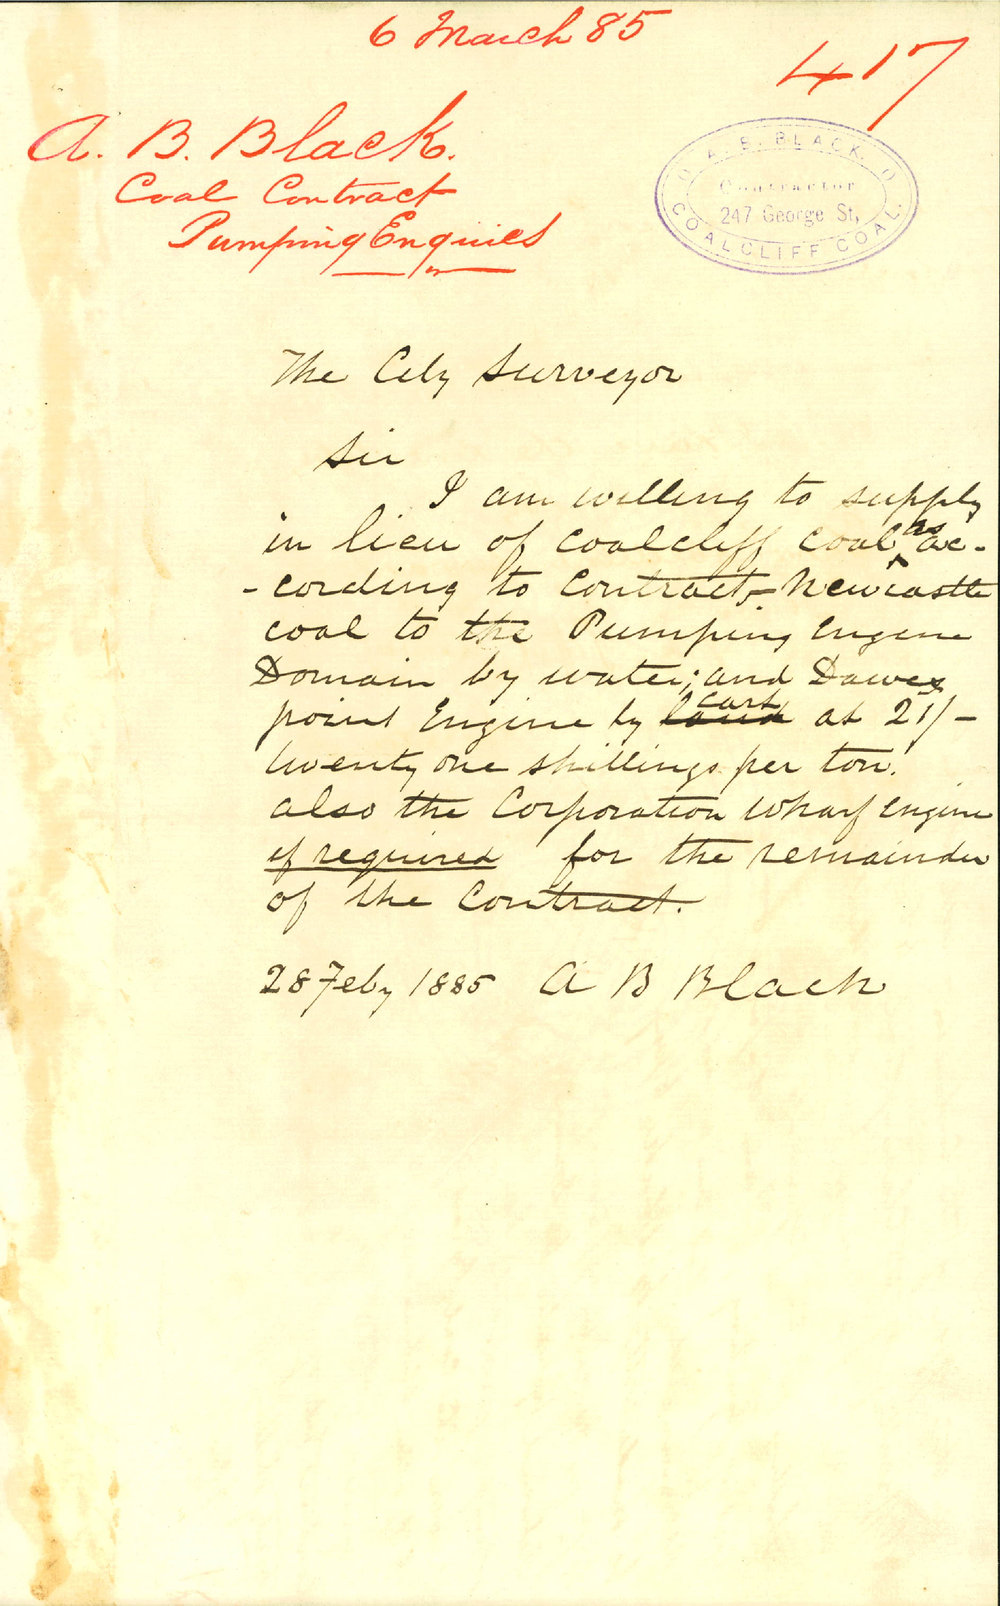 6 March 85
417
A. B. Black.
Coal Contract
Pumping Engines
A. B. BLACK.
Contractor
247 George St,
COALCLIFF COAL.
The City Surveyor
Sir
I am willing to supply
in lieu of Coalcliff Coal as ac-
-cording to Contract,- Newcastle
coal to the Pumping Engine
Domain by water; and Dawes
point Engine by land cart at 21/-
twenty one shillings per ton.
also the Corporation Wharf Engine
if required for the remainder
of the Contract.
28 Feby 1885 A B Black